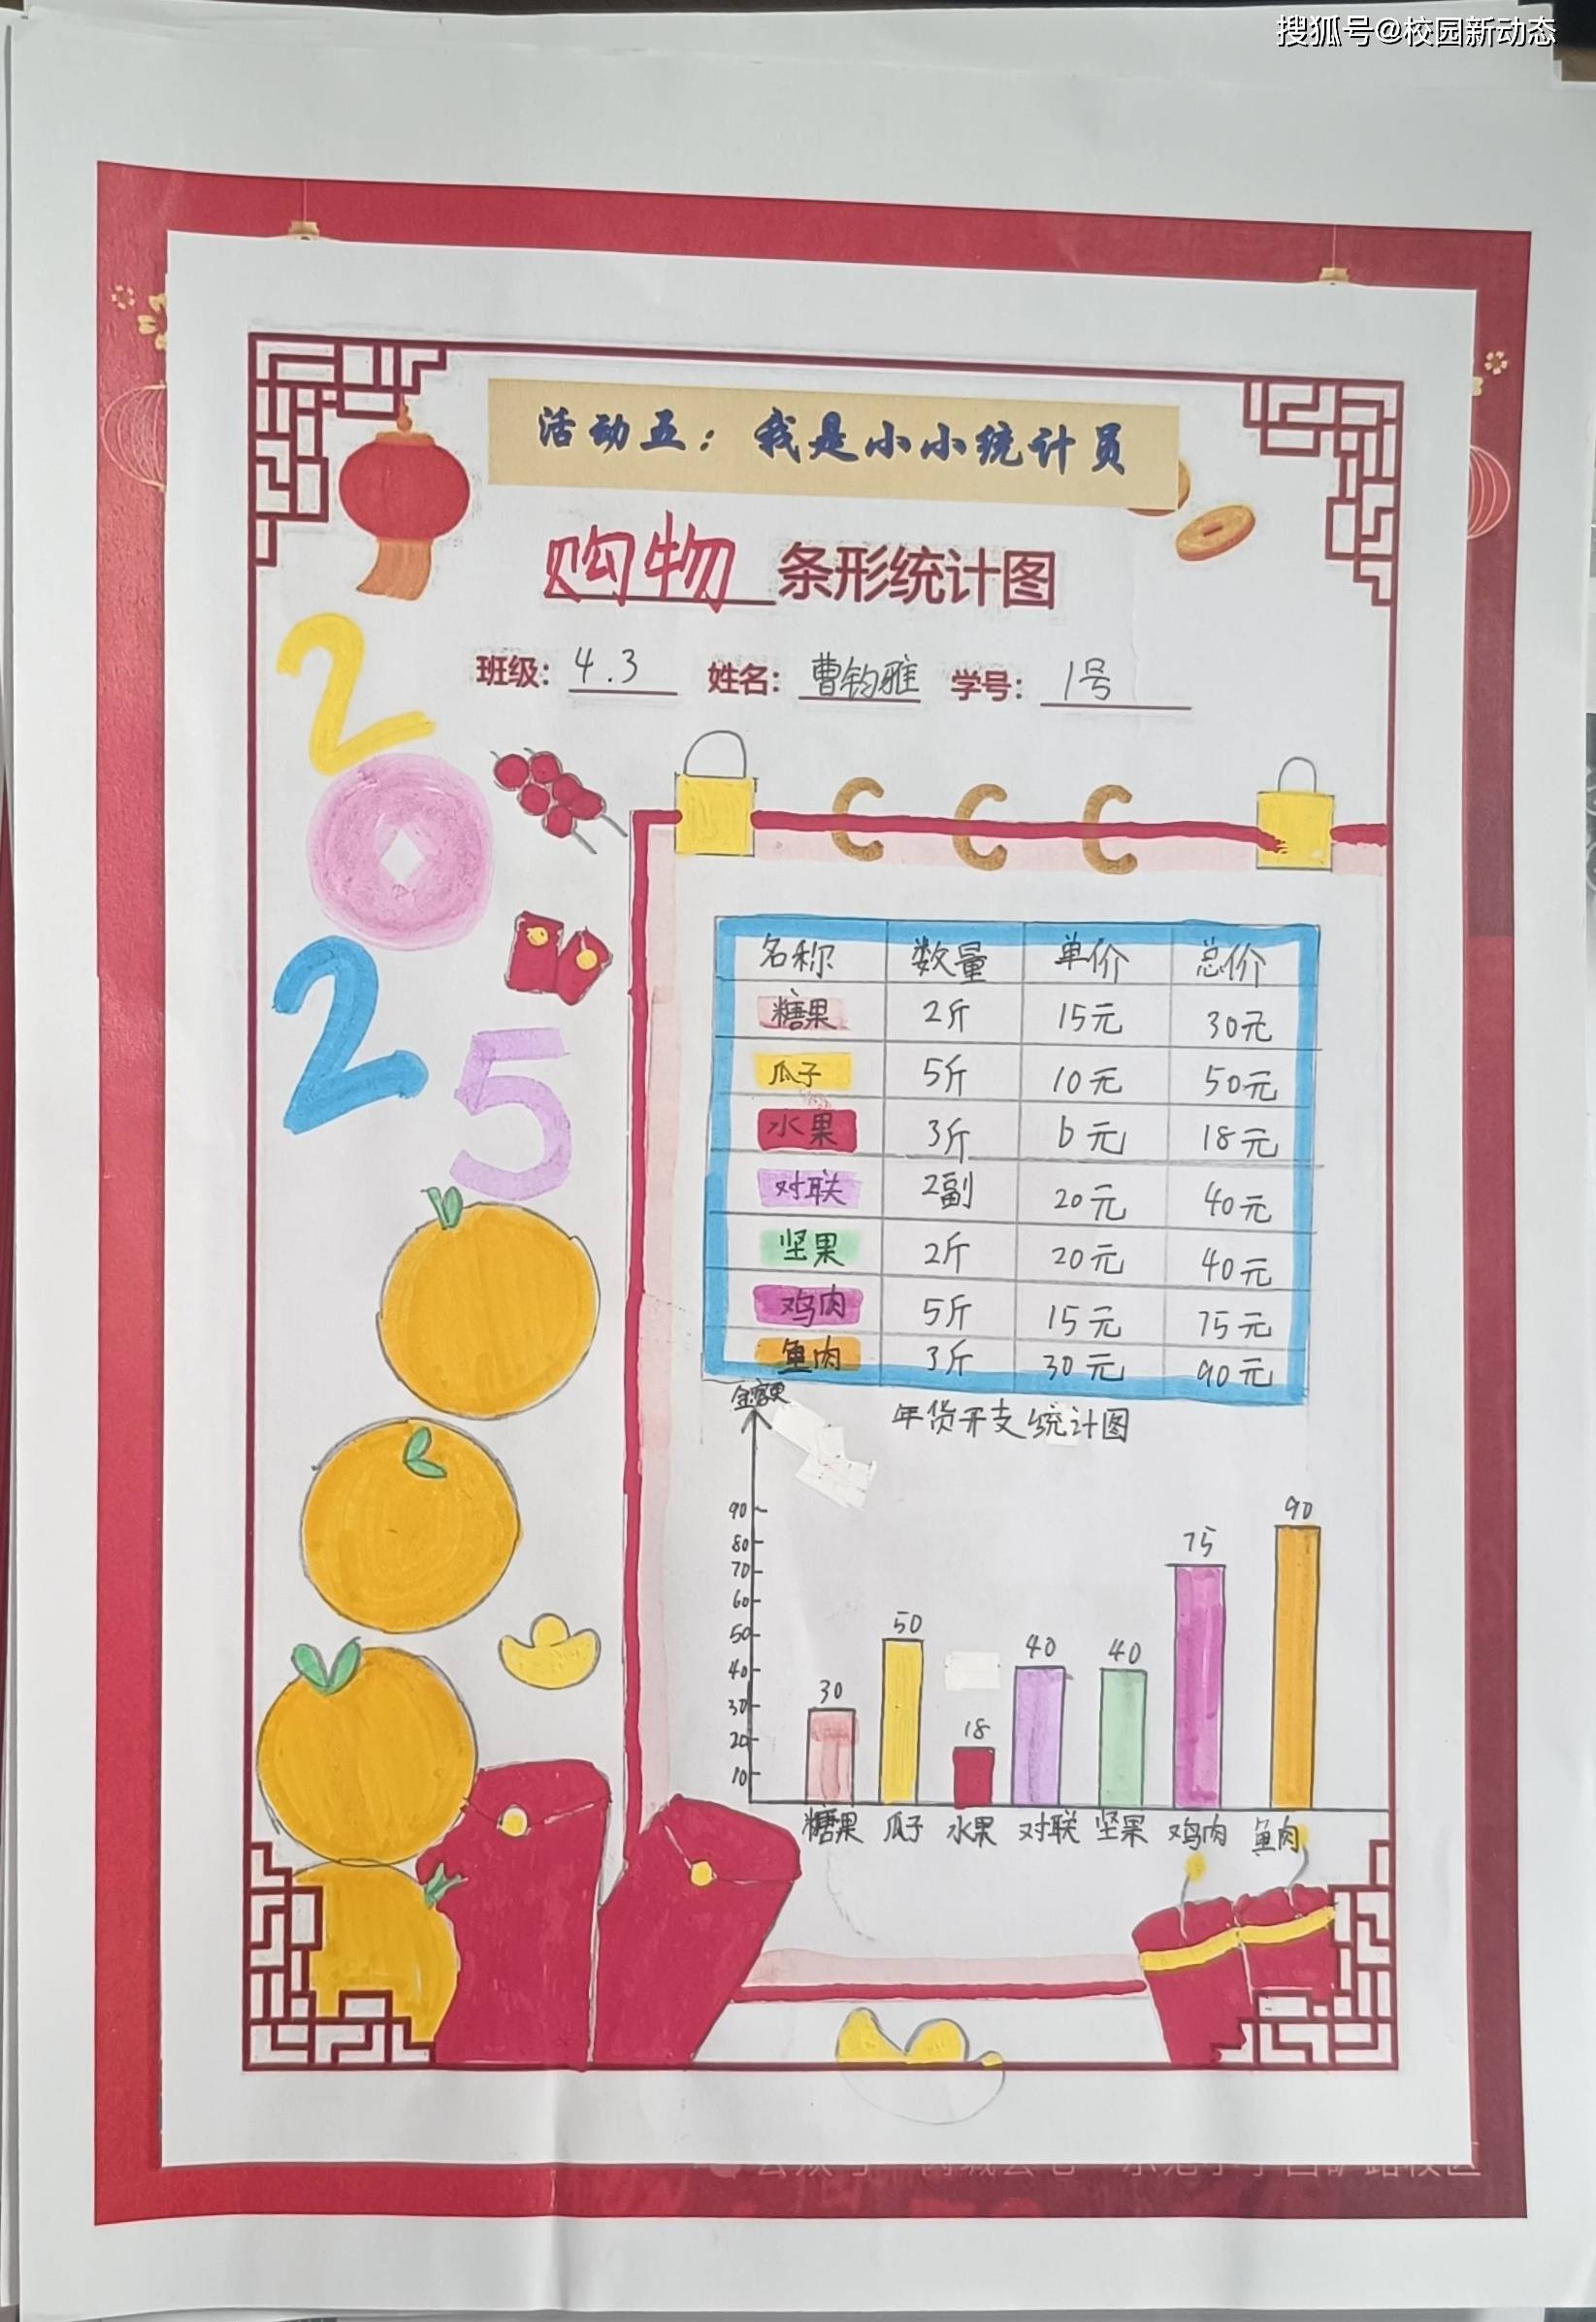 搜狐号@校园新动态
活动五：我是小小统计员
购物条形统计图
班级：4.3 姓名：曹钧雅 学号：1号
2025
名称 数量 单价 总价
糖果 2斤 15元 30元
瓜子 5斤 10元 50元
水果 3斤 6元 18元
对联 2副 20元 40元
坚果 2斤 20元 40元
鸡肉 5斤 15元 75元
鱼肉 3斤 30元 90元
年货开支统计图
金额
90
80
70
60
50
40
30
20
10
30 50 18 40 40 75 90
糖果 瓜子 水果 对联 坚果 鸡肉 鱼肉